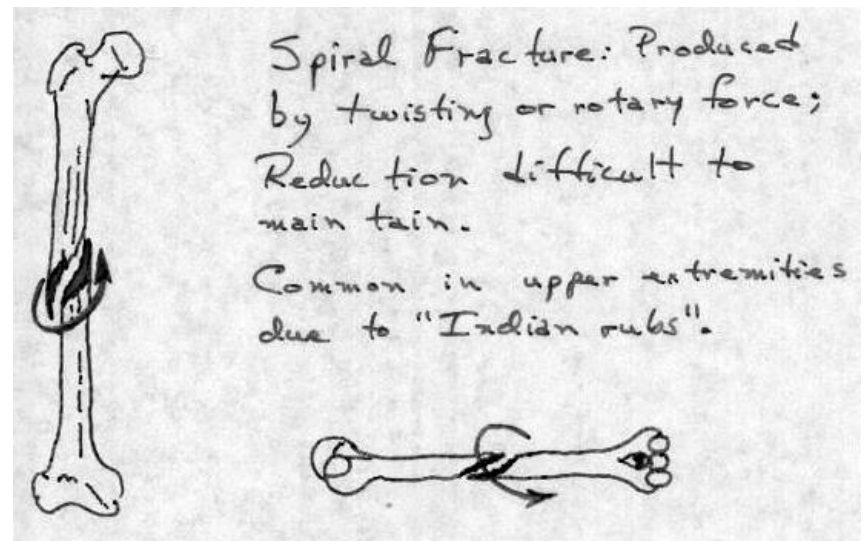 Spiral Fracture: Produced
by twisting or rotary force;
Reduction difficult to
maintain.
Common in upper extremities
due to "Indian rubs".